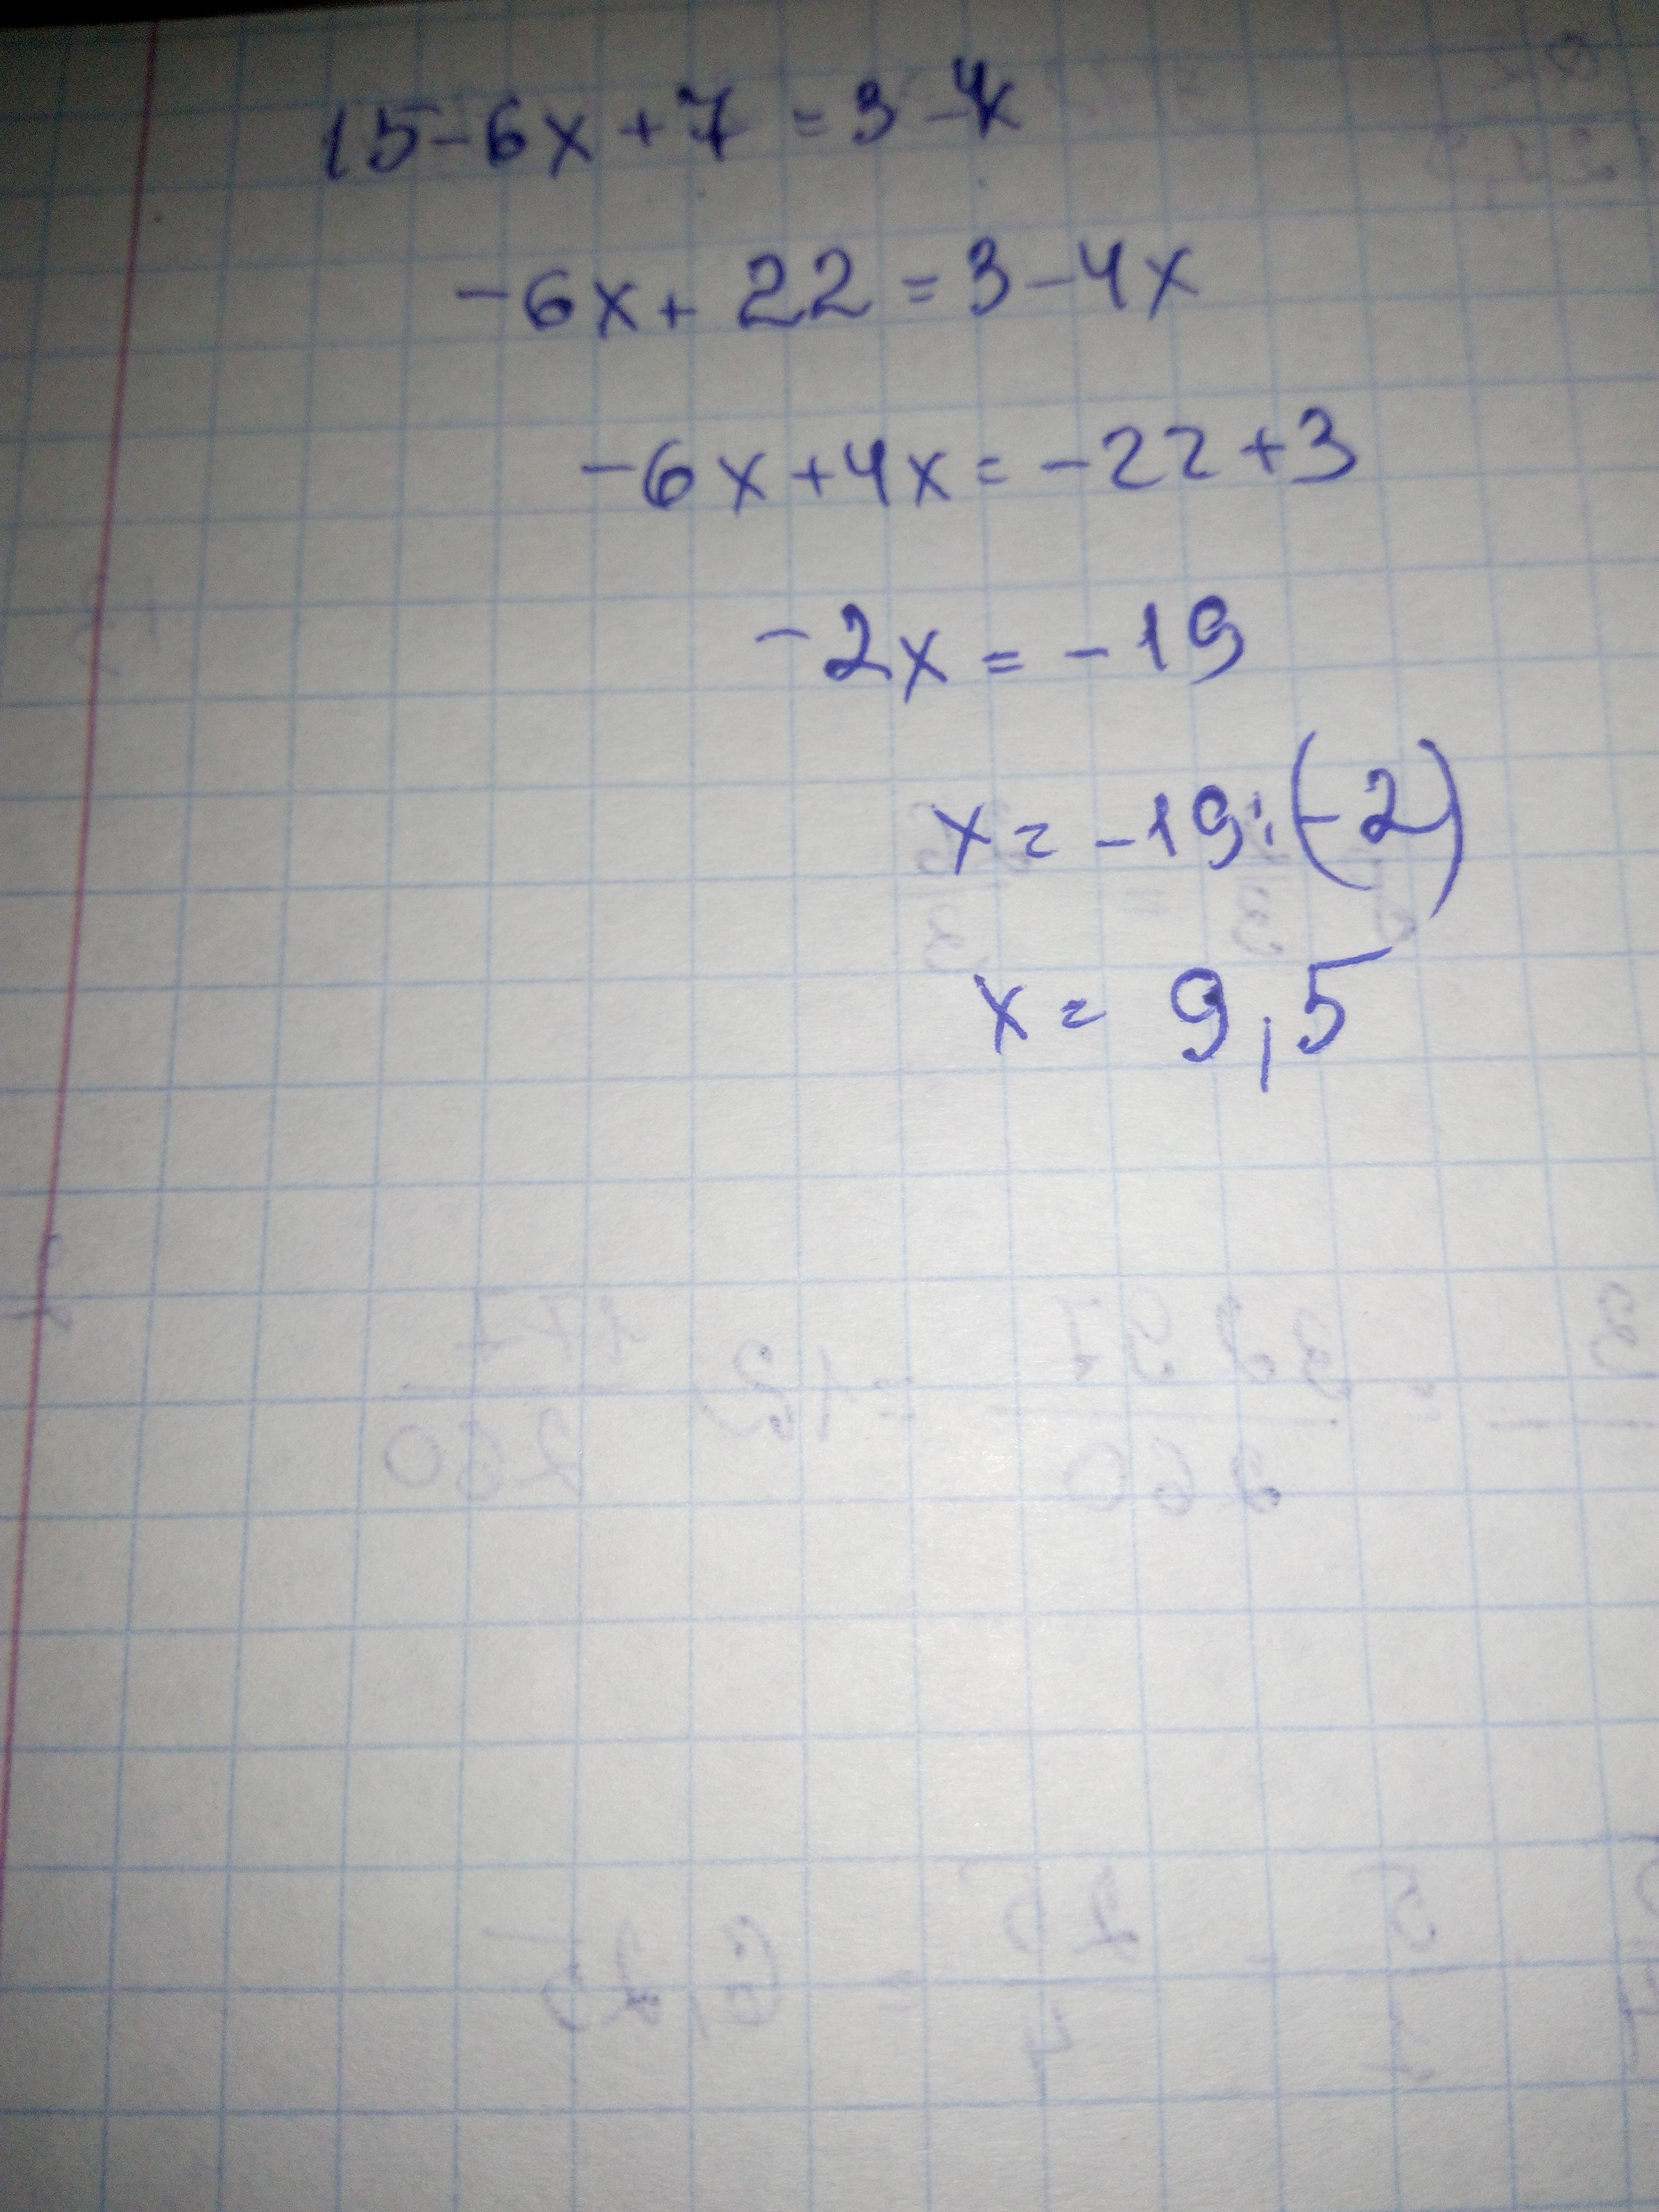 15-6x+7=3-4x
-6x+22=3-4x
-6x+4x=-22+3
-2x=-19
x=-19:(-2)
x=9,5